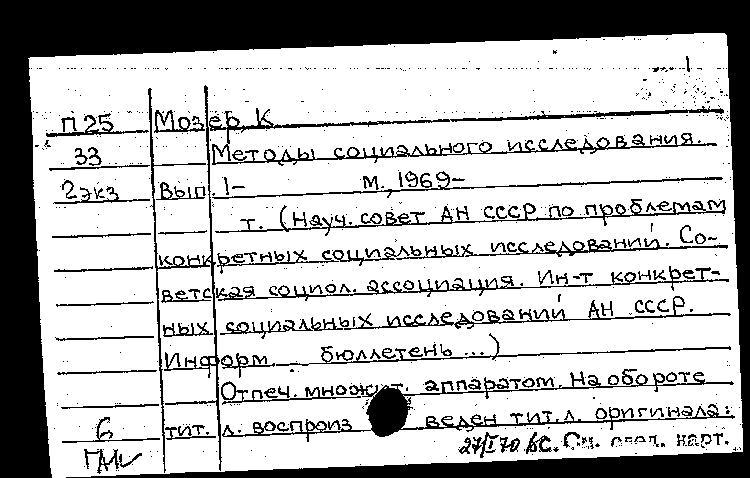 1
П25 Мозер, К
33 Методы социального исследования.
2экз Вып. 1- М., 1969-
т. (Науч. совет АН СССР по проблемам
конкретных социальных исследований. Со-
ветская социол. ассоциация. Ин-т конкрет-
ных социальных исследований АН СССР.
Информ. бюллетень ...)
Отпеч. множит. аппаратом. На обороте
б тит. л. воспроизведен тит. л. оригинала:
27/I 70 См. след. карт.